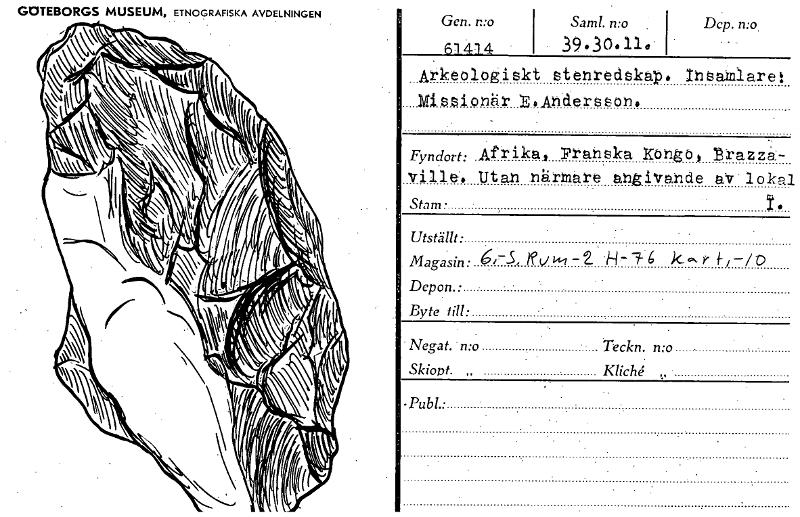 GÖTEBORGS MUSEUM, ETNOGRAFISKA AVDELNINGEN
Gen. n:o Saml. n:o Dep. n:o
61414 39.30.11.
Arkeologiskt stenredskap. Insamlare:
Missionär E.Andersson.
Fyndort: Afrika, Franska Kongo, Brazza-
ville. Utan närmare angivande av lokal
Stam: I.
Utställt:
Magasin: 6,-S, Rum-2 H-76 Kart,-10
Depon.:
Byte till:
Negat. n:o Teckn. n:o
Skiopt. „ Kliché „
Publ.: